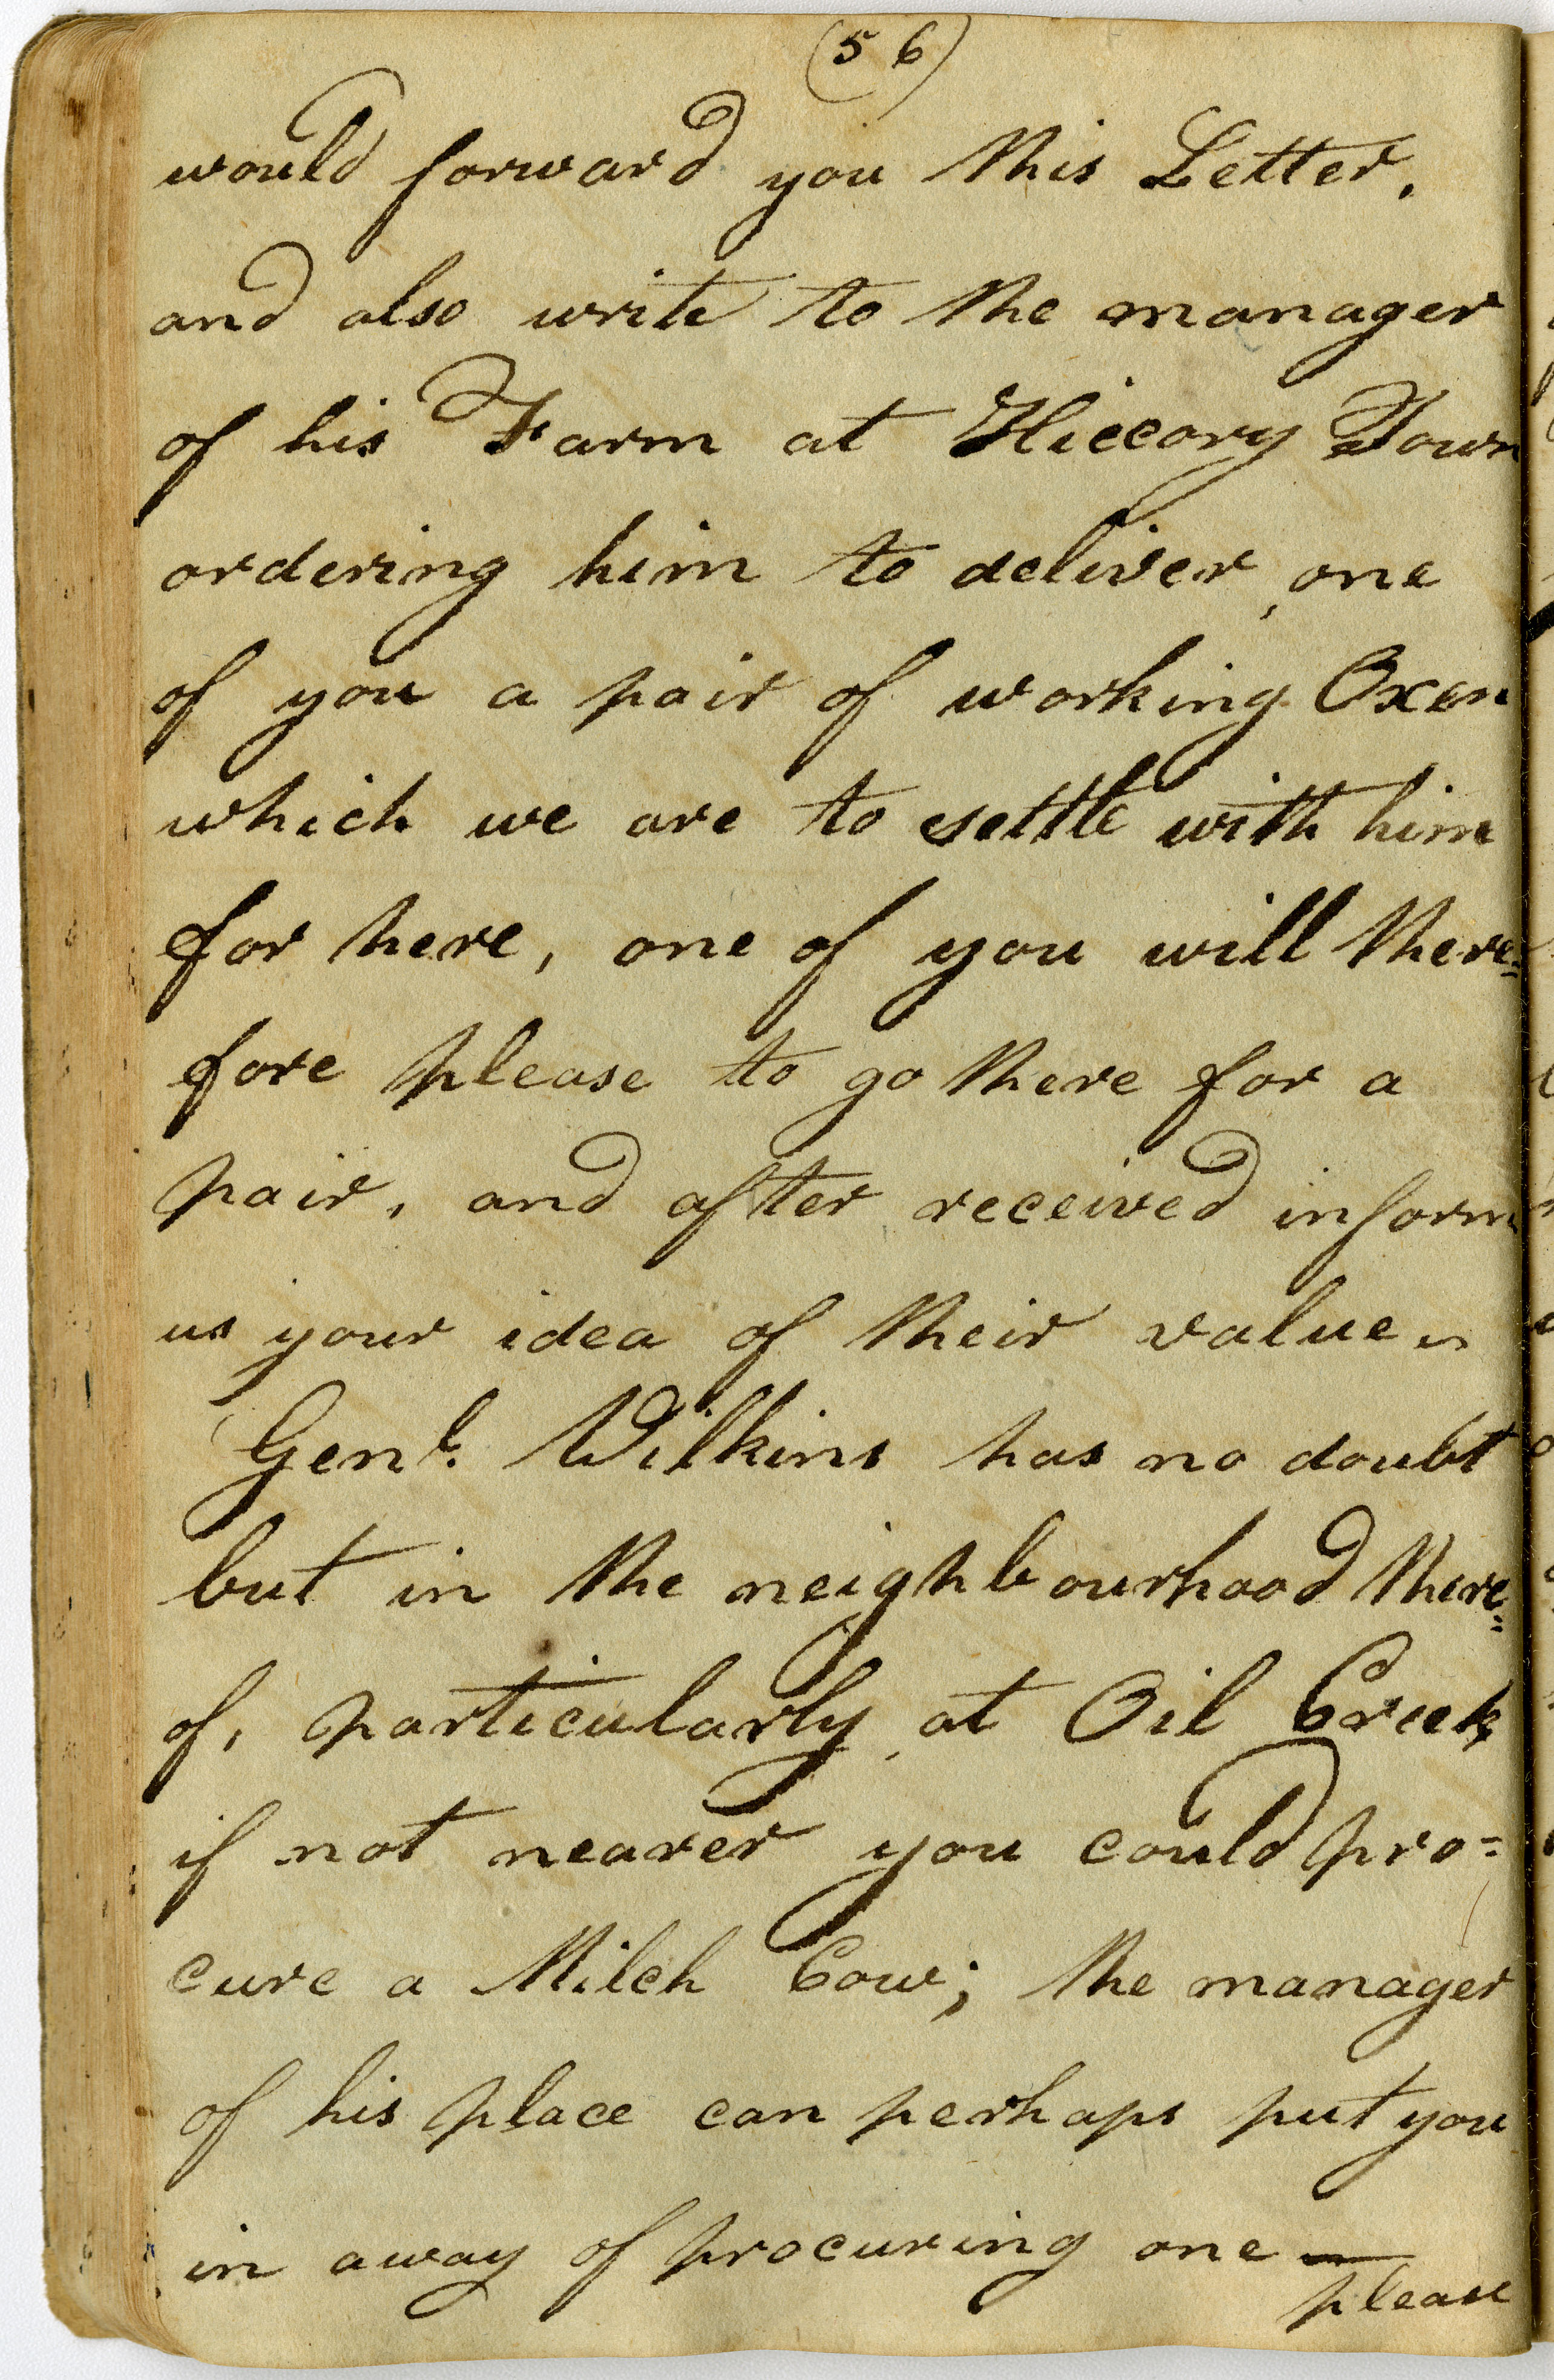 (56)
would forward you this Letter,
and also write to the manager
of his Farm at Hiccory Town
ordering him to deliver, one
of you a pair of working Oxen
which we are to settle with him
for here, one of you will there=
fore please to go there for a
pair, and after received inform
us your idea of their value
Genl. Wilkins has no doubt
but in the neighbourhood there=
of, particularly at Oil Creek
if not nearer you could pro=
cure a Milch Cow; the manager
of his place can perhaps put you
in away of procuring one —
please